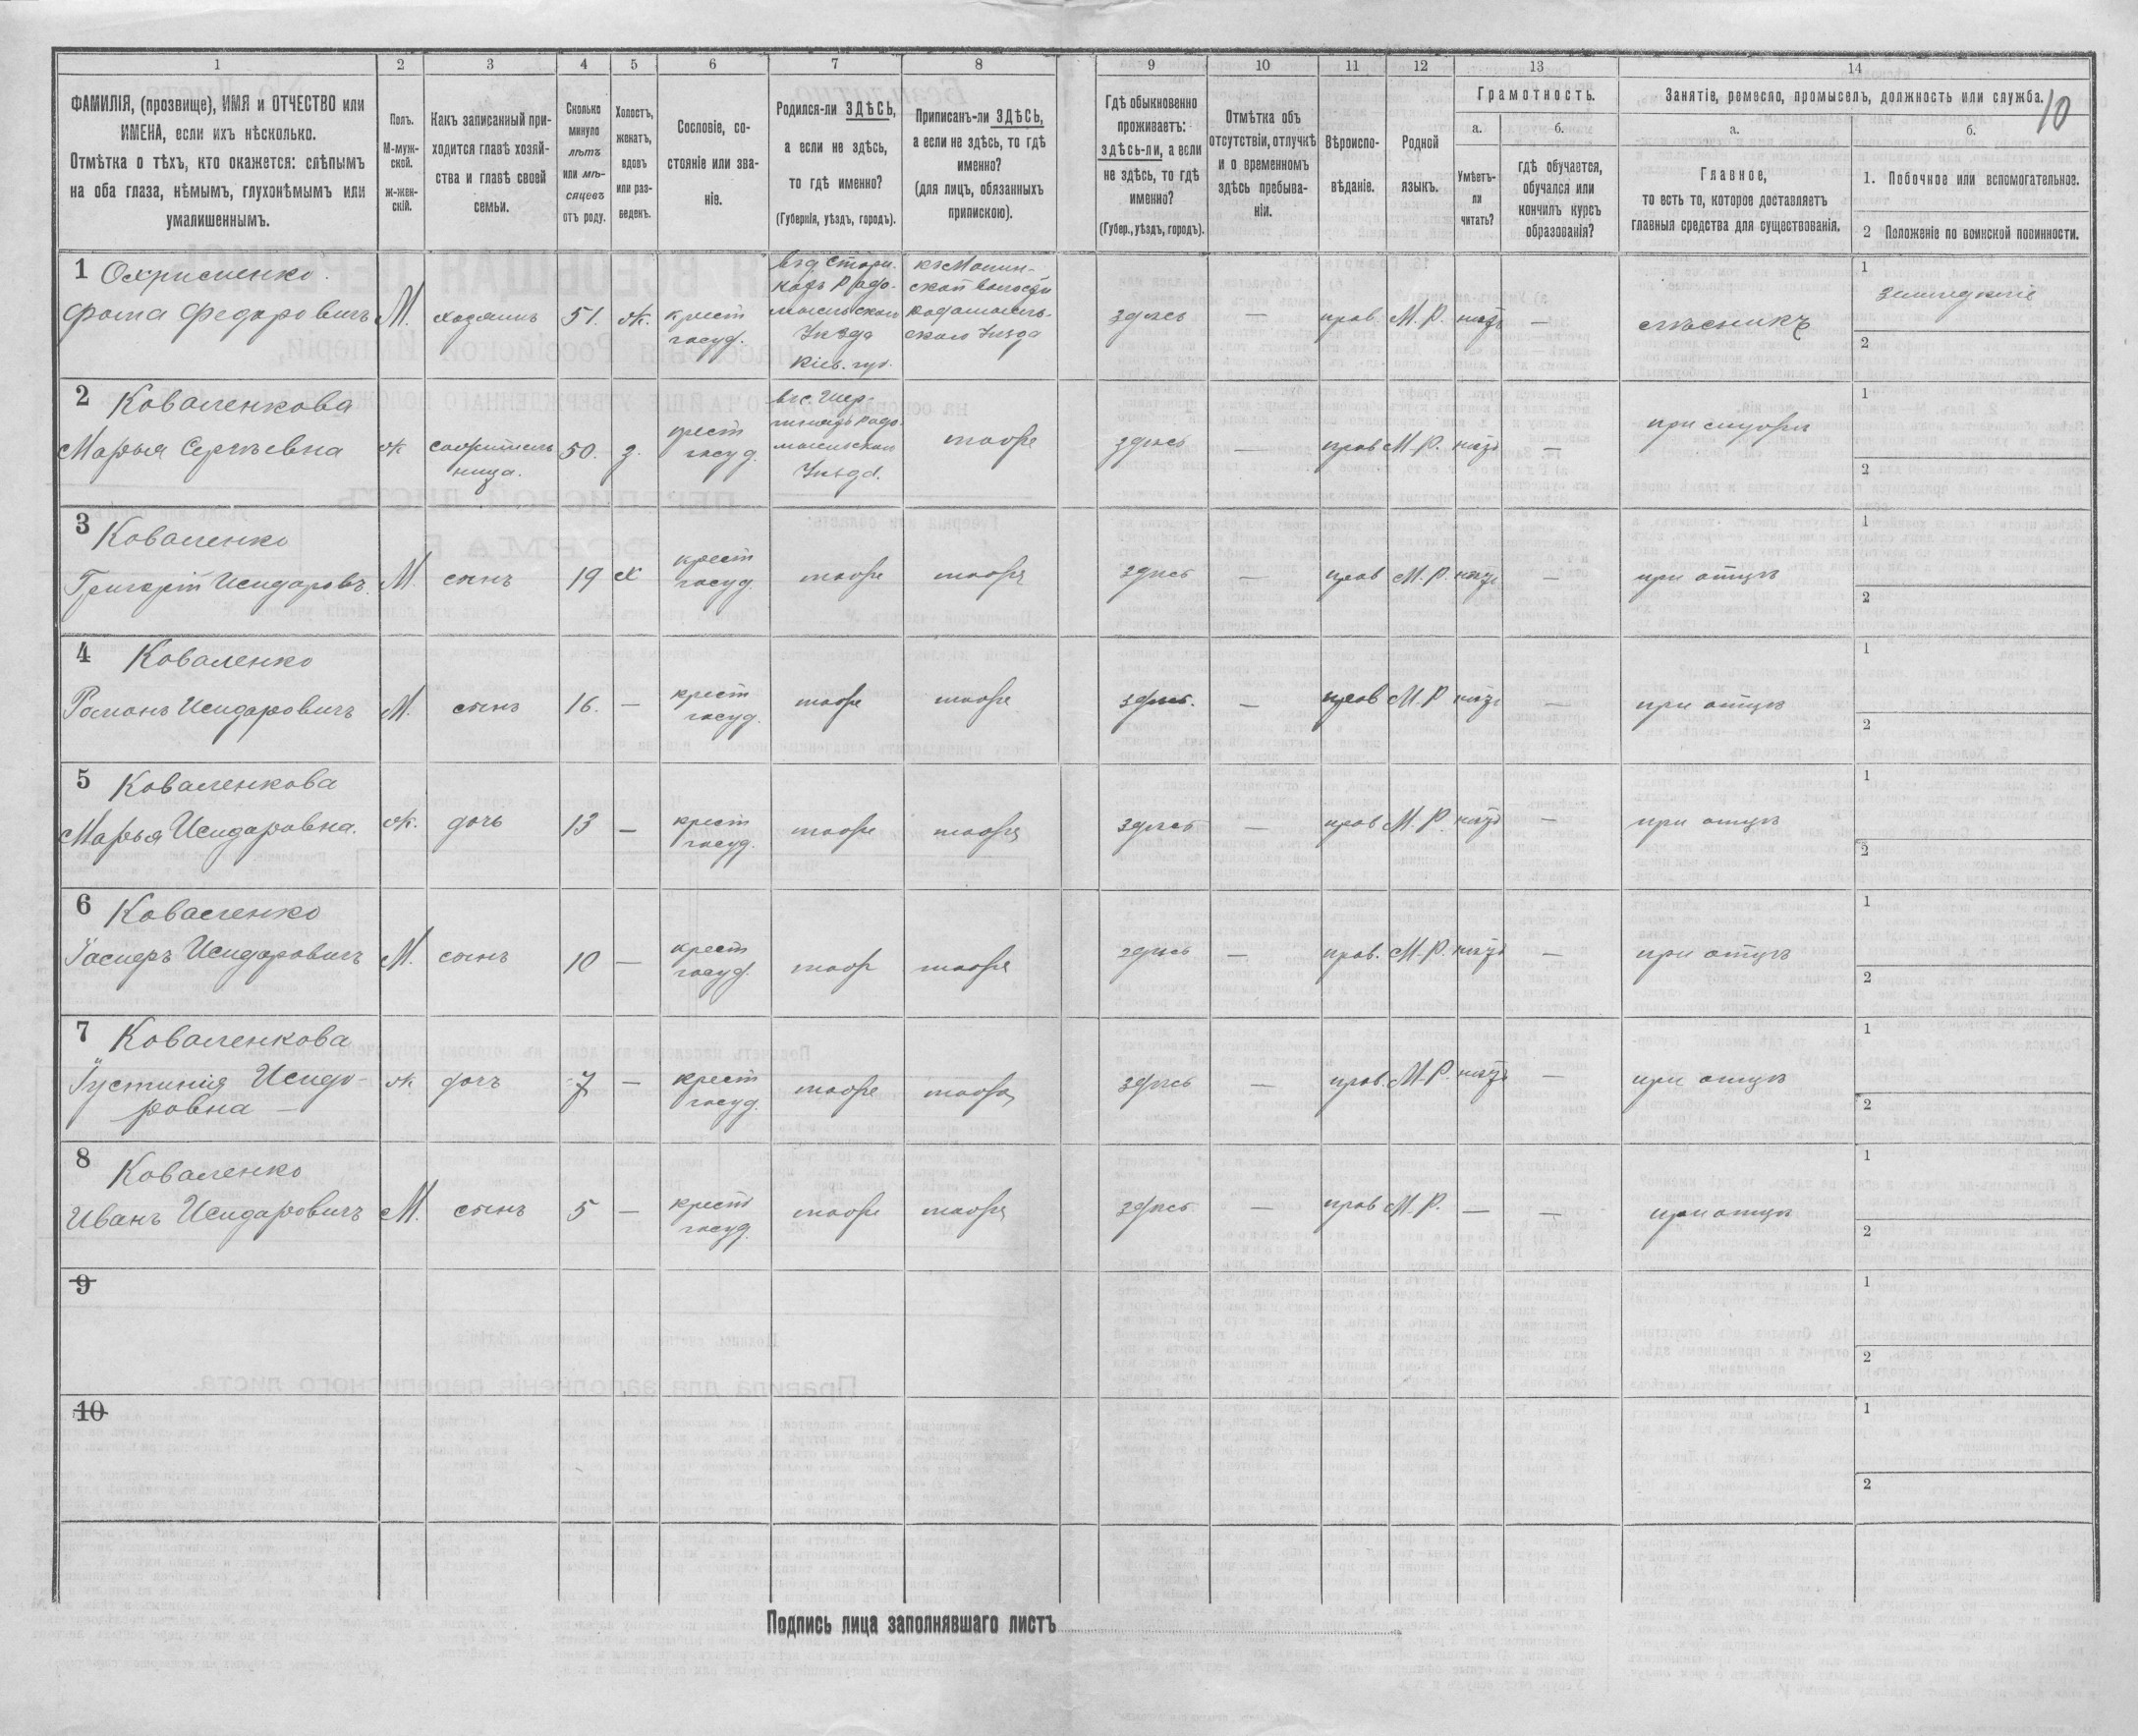 1 2 3 4 5 6 7 8 9 10 11 12 13 14
10
ФАМИЛІЯ, (прозвище), ИМЯ и ОТЧЕСТВО или
ИМЕНА, если ихъ нѣсколько.
Отмѣтка о тѣхъ, кто окажется: слѣпымъ
на оба глаза, нѣмымъ, глухонѣмымъ или
умалишеннымъ.
Полъ.
М-муж-
ской.
ж-жен-
скій.
Какъ записанный при-
ходится главѣ хозяй-
ства и главѣ своей
семьи.
Сколько
минуло
лѣтъ
или мѣ-
сяцевъ
отъ роду.
Холостъ,
женатъ,
вдовъ
или раз-
веденъ.
Сословіе, со-
стояніе или зва-
ніе.
Родился-ли ЗДѢСЬ,
а если не здѣсь,
то гдѣ именно?
(Губернія, уѣздъ, городъ).
Приписанъ-ли ЗДѢСЬ,
а если не здѣсь, то гдѣ
именно?
(для лицъ, обязанныхъ
припискою).
Гдѣ обыкновенно
проживаетъ:
здѣсь-ли, а если
не здѣсь, то гдѣ
именно?
(Губер., уѣздъ, городъ).
Отмѣтка объ
отсутствіи, отлучкѣ
и о временномъ
здѣсь пребыва-
ніи.
Вѣроиспо-
вѣданіе.
Родной
языкъ.
Грамотность.
а.
Умѣетъ-
ли
читать?
б.
гдѣ обучается,
обучался или
кончилъ курсъ
образованія?
Занятіе, ремесло, промыселъ, должность или служба.
а.
Главное,
то есть то, которое доставляетъ
главныя средства для существованія.
б.
1. Побочное или вспомогательное.
2 Положеніе по воинской повинности.
1 Охрименко
Фома Федоровичъ М. хозяинъ 51. ж. крест госуд. Уѣзда Кіев. губ. здѣсь — прав. М. Р. нѣтъ — 1 земледѣліе 2
2 Коваленкова
Марья Сергѣевна ж 50. крест госуд. Уѣзда. тоже здѣсь — прав М. Р. нѣтъ — 1 2
3 Коваленко
Григорій Исидоровъ. М. сынъ 19 х крест госуд. тоже тоже здѣсь — прав М. Р. нѣтъ — при отцѣ 1 2
4 Коваленко
Романъ Исидоровичъ М. сынъ 16. — крест госуд. тоже тоже здѣсь. — прав М. Р нѣтъ — при отцѣ 1 2
5 Коваленкова
Марья Исидоровна. ж. дочь 13 — крест госуд. тоже тоже здѣсь — прав М. Р. нѣтъ — при отцѣ 1 2
6 Коваленко
Исидоровичъ М. сынъ 10 — крест госуд. тоже тоже здѣсь — прав. М. Р. нѣтъ — при отцѣ 1 2
7 Коваленкова
Їустинія Исидо-
ровна — ж дочь 7 — крест госуд. тоже тоже здѣсь — прав. М. Р. нѣтъ — при отцѣ 1 2
8 Коваленко
Иванъ Исидоровичъ М. сынъ 5 — крест госуд. тоже тоже здѣсь — прав М. Р. — — при отцѣ 1 2
9 1 2
10 1 2
Подпись лица заполнявшаго листъ